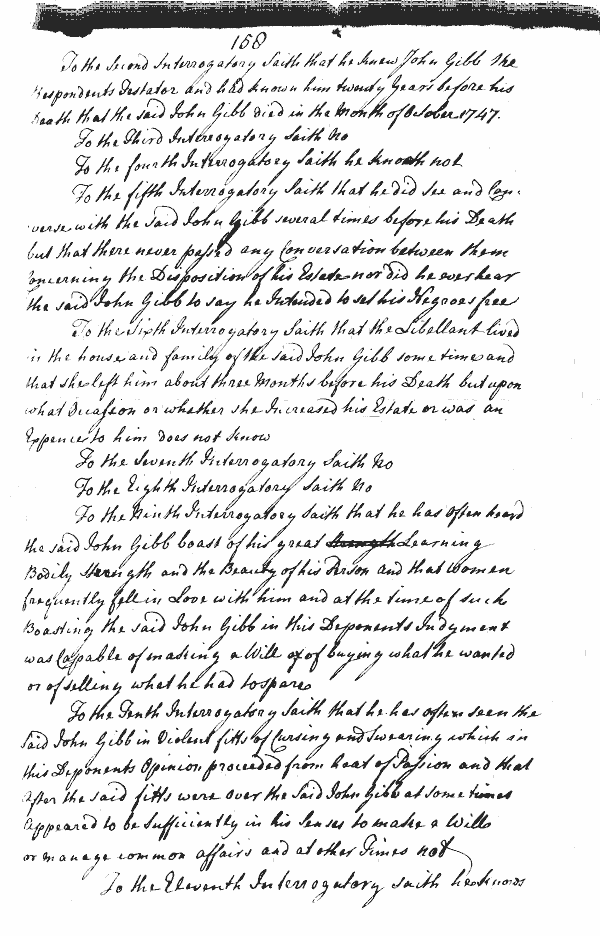 158
To the Second Interrogatory Saith that he knew John Gibb the
Respondents Testator and had known him twenty Years before his
Death that the said John Gibb died in the Month of October 1747.
To the Third Interrogatory saith No
To the fourth Interrogatory saith he knoweth not
To the fifth Interrogatory Saith that he did see and Con-
verse with the said John Gibb several times before his Death
but that there never passed any Conversation between them
Concerning the Disposition of his Estate nor did he ever hear
the said John Gibb to say he Intended to set his Negroes free
To the Sixth Interrogatory Saith that the Libellant lived
in the house and family of the said John Gibb some time and
that she left him about three Months before his Death but upon
what Occasion or whether she Increased his Estate or was an
Expence to him does not know
To the Seventh Interrogatory Saith No
To the Eighth Interrogatory Saith No
To the Ninth Interrogatory saith that he has often heard
the said John Gibb boast of his great Strength Learning
Bodily Strength and the Beauty of his Person and that Women
frequently fell in Love with him and at the time of such
Boasting the said John Gibb in this Deponents Judgment
was Capable of making a Will or of buying what he wanted
or of selling what he had to spare
To the Tenth Interrogatory Saith that he has often seen the
Said John Gibb in Violent fitts of Cursing and Swearing which in
this Deponents Opinion proceeded from heat of Passion and that
After the said fitts were over the Said John Gibb at some times
Appeared to be Sufficiently in his Senses to make a Will
or manage common affairs and at other Times not
To the Eleventh Interrogatory saith he knows